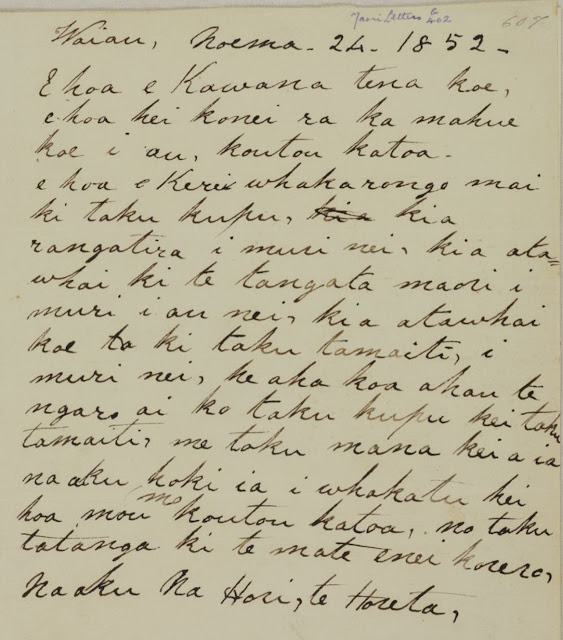 Maori Letters G 402
607
Waiau, Noema. 24. 1852.
E hoa e Kawana tena koe,
e hoa hei konei ra ka mahue
koe i au, koutou katoa.
e hoa e Kerei whakarongo mai
ki taku kupu, kia kia
rangatira i muri nei, kia ata=
whai ki te tangata maori i
muri i au nei, kia atawhai
koe ta ki taku tamaiti, i
muri nei, he aha koa ahau te
ngaro ai ko taku kupu kei taku
tamaiti, me taku mana kei a ia
naaku hoki ia i whakatu hei
hoa mou mo koutou katoa, no taku
tatanga ki te mate enei korero,
Naaku Na Hori, te Horeta,